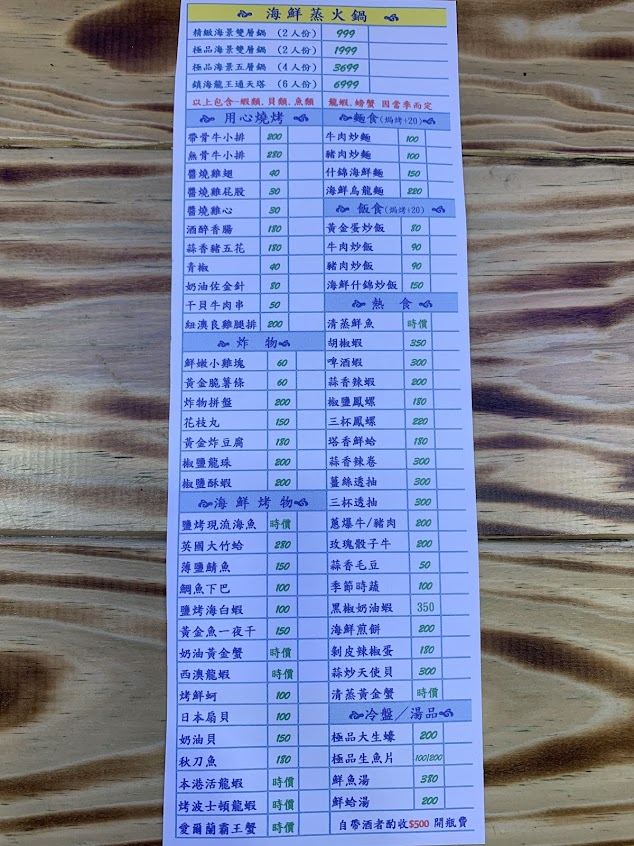 海鮮蒸火鍋
精緻海景雙層鍋 (2人份) 999
極品海景雙層鍋 (2人份) 1999
極品海景五層鍋 (4人份) 3699
鎮海龍王通天塔 (6人份) 6999
以上包含-蝦類.貝類.魚類 龍蝦.螃蟹 因當季而定
用心燒烤
帶骨牛小排 200
無骨牛小排 280
醬燒雞翅 40
醬燒雞屁股 30
醬燒雞心 30
酒醉香腸 180
蒜香豬五花 180
青椒 40
奶油佐金針 80
干貝牛肉串 50
紐澳良雞腿排 200
炸 物
鮮嫩小雞塊 60
黃金脆薯條 60
炸物拼盤 200
花枝丸 150
黃金炸豆腐 180
椒鹽龍珠 200
椒鹽酥蝦 200
海鮮烤物
鹽烤現流海魚 時價
英國大竹蛤 280
薄鹽鯖魚 150
鯛魚下巴 100
鹽烤海白蝦 100
黃金魚一夜干 150
奶油黃金蟹 時價
西澳龍蝦 時價
烤鮮蚵 100
日本扇貝 100
奶油貝 150
秋刀魚 180
本港活龍蝦 時價
烤波士頓龍蝦 時價
愛爾蘭霸王蟹 時價
麵食(焗烤+20)
牛肉炒麵 100
豬肉炒麵 100
什錦海鮮麵 150
海鮮烏龍麵 220
飯食(焗烤+20)
黃金蛋炒飯 80
牛肉炒飯 90
豬肉炒飯 90
海鮮什錦炒飯 150
熱 食
清蒸鮮魚 時價
胡椒蝦 350
啤酒蝦 300
蒜香辣蝦 200
椒鹽鳳螺 180
三杯鳳螺 220
塔香鮮蛤 180
蒜香辣卷 300
薑絲透抽 300
三杯透抽 300
蔥爆牛/豬肉 200
玫瑰骰子牛 200
蒜香毛豆 50
季節時蔬 100
黑椒奶油蝦 350
海鮮煎餅 200
剝皮辣椒蛋 180
蒜炒天使貝 300
清蒸黃金蟹 時價
冷盤／湯品
極品大生蠔 200
極品生魚片 100|200
鮮魚湯 380
鮮蛤湯 200
自帶酒者酌收$500 開瓶費